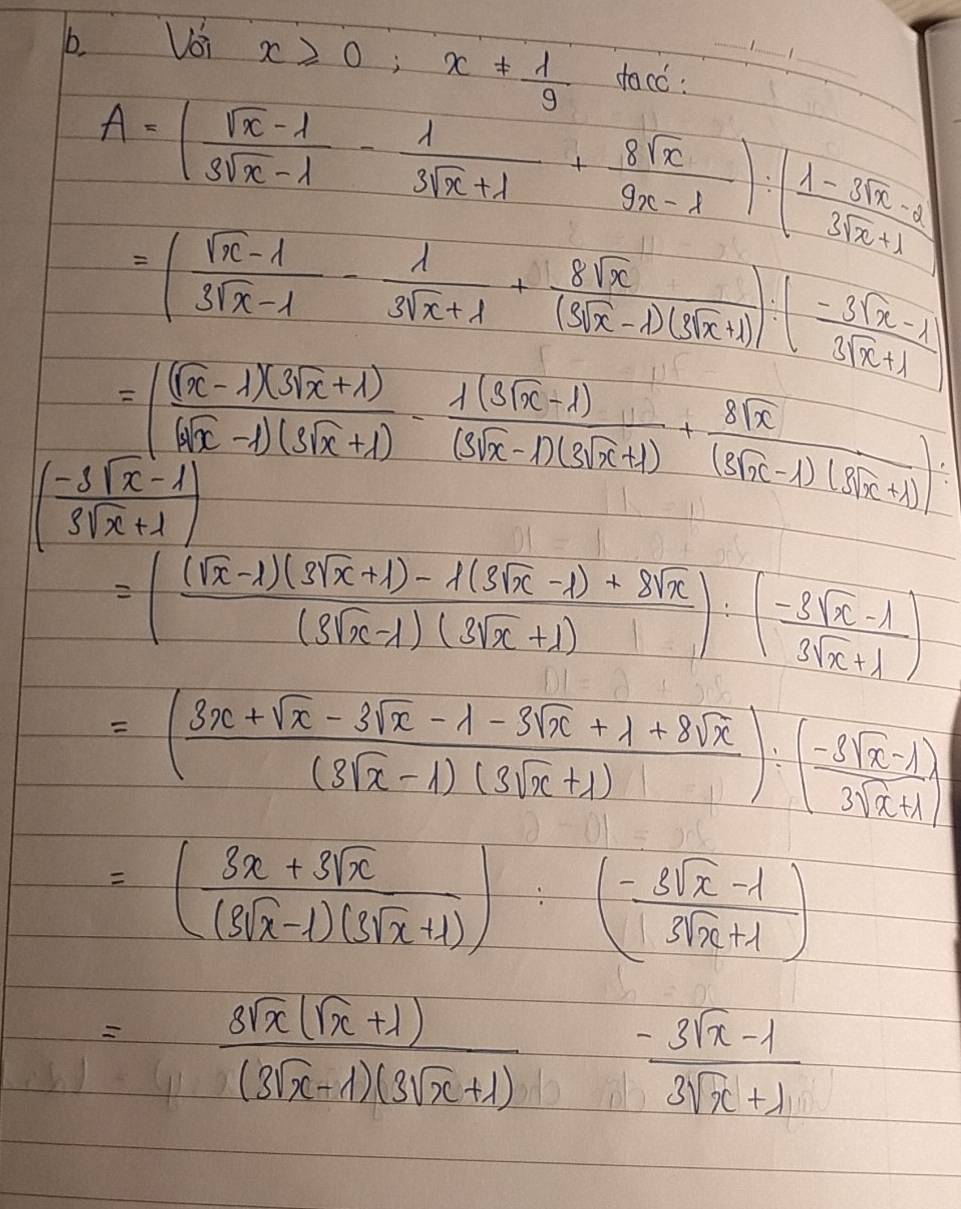 b. Với x ≥ 0 ; x ≠ 1/9 ta có :
A = ( (√x - 1)/(3√x - 1) - 1/(3√x + 1) + 8√x/(9x - 1) ) : ( (1 - 3√x - 2)/(3√x + 1) )
= ( (√x - 1)/(3√x - 1) - 1/(3√x + 1) + 8√x/((3√x - 1)(3√x + 1)) ) : ( (-3√x - 1)/(3√x + 1) )
= ( ((√x - 1)(3√x + 1))/((3√x - 1)(3√x + 1)) - (1(3√x - 1))/((3√x - 1)(3√x + 1)) + 8√x/((3√x - 1)(3√x + 1)) ) :
( (-3√x - 1)/(3√x + 1) )
= ( ((√x - 1)(3√x + 1) - 1(3√x - 1) + 8√x)/((3√x - 1)(3√x + 1)) ) : ( (-3√x - 1)/(3√x + 1) )
= ( (3x + √x - 3√x - 1 - 3√x + 1 + 8√x)/((3√x - 1)(3√x + 1)) ) : ( (-3√x - 1)/(3√x + 1) )
= ( (3x + 3√x)/((3√x - 1)(3√x + 1)) ) : ( (-3√x - 1)/(3√x + 1) )
= (3√x(√x + 1))/((3√x - 1)(3√x + 1)) (-3√x - 1)/(3√x + 1)